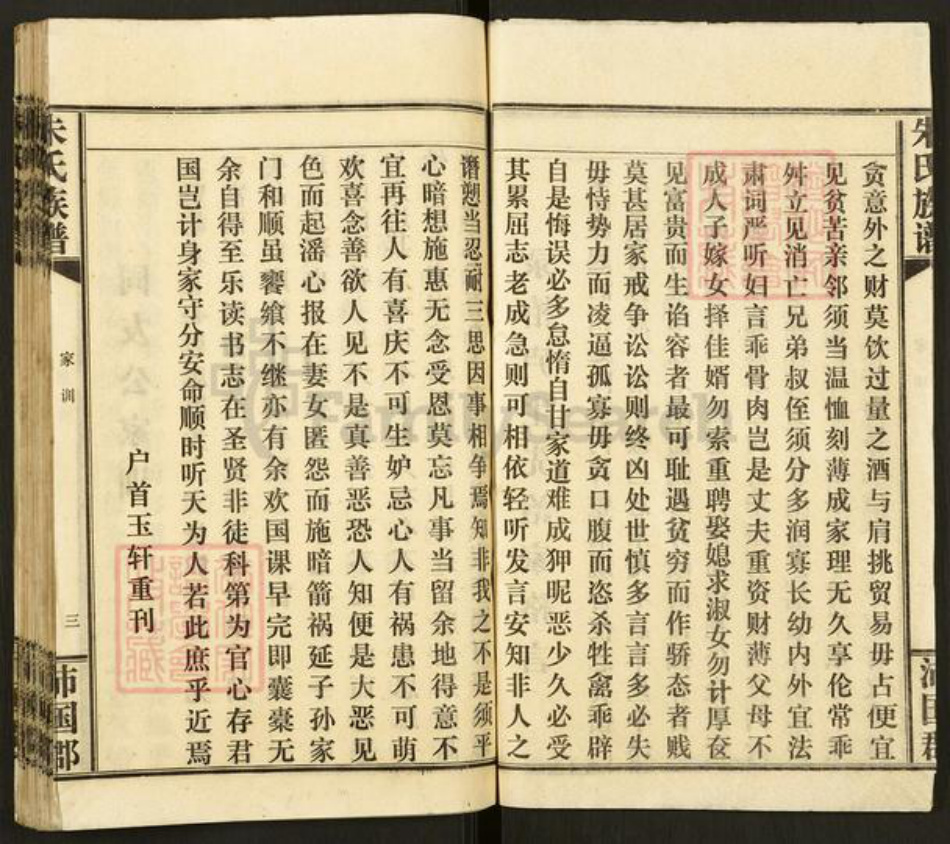 贪意外之财莫饮过量之酒与肩挑贸易毋占便宜
见贫苦亲邻须当温恤刻薄成家理无久享伦常乖
舛立见消亡兄弟叔侄须分多润寡长幼内外宜法
肃词严听妇言乖骨肉岂是丈夫重资财薄父母不
成人子嫁女择佳婿勿索重聘娶媳求淑女勿计厚奁
见富贵而生谄容者最可耻遇贫穷而作骄态者贱
莫甚居家戒争讼讼则终凶处世慎多言言多必失
毋恃势力而凌逼孤寡毋贪口腹而恣杀牲禽乖辟
自是悔误必多怠惰自甘家道难成狎昵恶少久必受
其累屈志老成急则可相依轻听发言安知非人之
谮愬当忍耐三思因事相争焉知非我之不是须平
心暗想施惠无念受恩莫忘凡事当留余地得意不
宜再往人有喜庆不可生妒忌心人有祸患不可萌
欢喜念善欲人见不是真善恶恐人知便是大恶见
色而起潘心报在妻女匿怨而施暗箭祸延子孙家
门和顺虽饔飧不继亦有余欢国课早完即囊橐无
余自得至乐读书志在圣贤非徒科第为官心存君
国岂计身家守分安命顺时听天为人若此庶乎近焉
户首玉轩重刊
朱氏族谱
家训
三
沛国郡